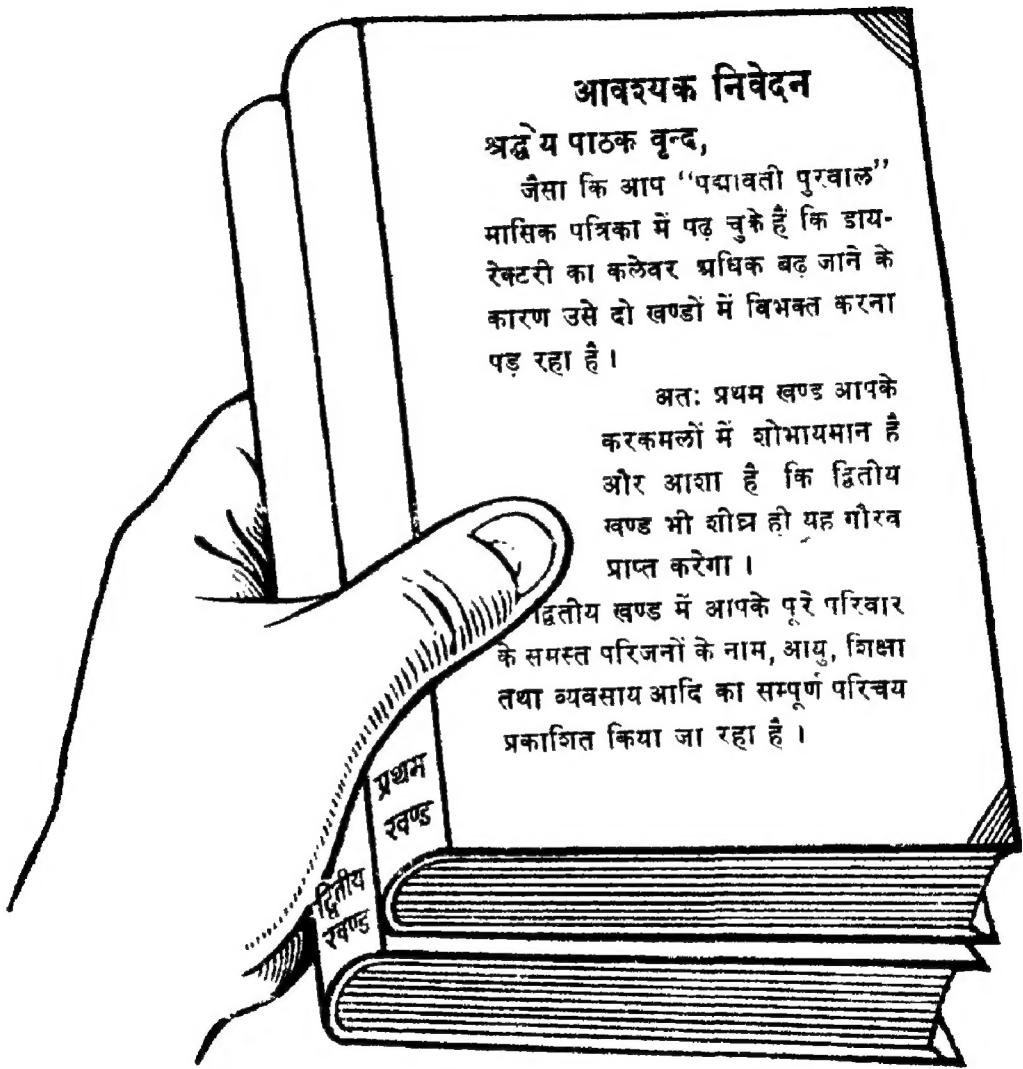 आवश्यक निवेदन
श्रद्धेय पाठक वृन्द,
जैसा कि आप “पद्मावती पुरवाल”
मासिक पत्रिका में पढ़ चुके हैं कि डाय-
रेक्टरी का कलेवर अधिक बढ़ जाने के
कारण उसे दो खण्डों में विभक्त करना
पड़ रहा है।
अतः प्रथम खण्ड आपके
करकमलों में शोभायमान है
और आशा है कि द्वितीय
खण्ड भी शीघ्र ही यह गौरव
प्राप्त करेगा।
द्वितीय खण्ड में आपके पूरे परिवार
के समस्त परिजनों के नाम, आयु, शिक्षा
तथा व्यवसाय आदि का सम्पूर्ण परिचय
प्रकाशित किया जा रहा है।
प्रथम
खण्ड
द्वितीय
खण्ड